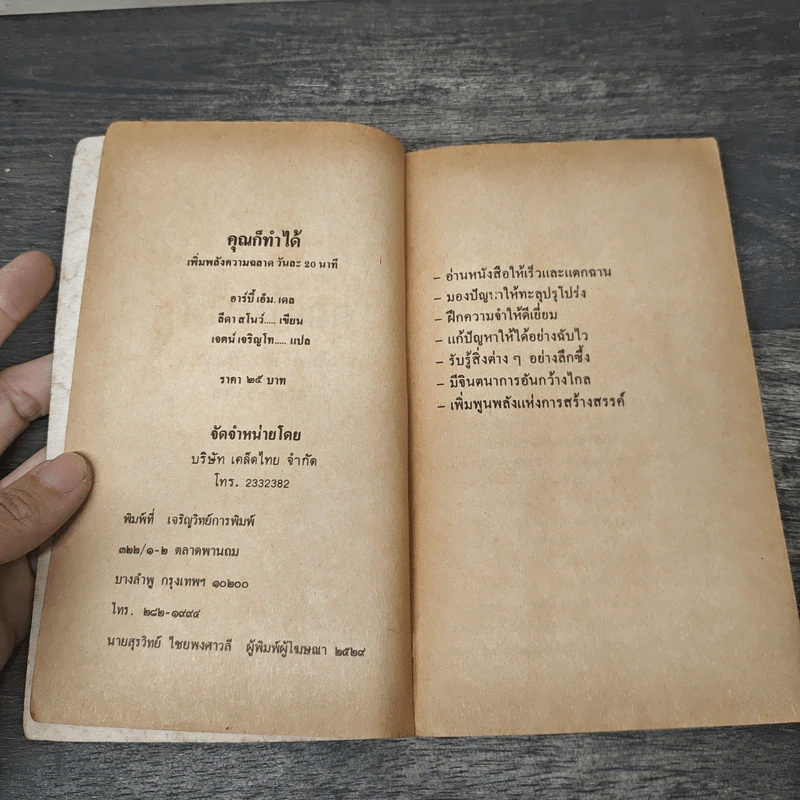 คุณก็ทำได้
เพิ่มพลังความฉลาด วันละ 20 นาที
อาร์บี้ เอ็ม. เดล
ลีดา สโนว์..... เขียน
เจตน์ เจริญโท..... แปล
ราคา ๒๕ บาท
จัดจำหน่ายโดย
บริษัท เคล็ดไทย จำกัด
โทร. 2332382
พิมพ์ที่ เจริญวิทย์การพิมพ์
๓๒๒/๑-๒ ตลาดพานถม
บางลำพู กรุงเทพฯ ๑๐๒๐๐
โทร. ๒๘๒-๑๙๙๔
นายสุรวิทย์ ไชยพงศาวลี ผู้พิมพ์ผู้โฆษณา ๒๕๒๙
– อ่านหนังสือให้เร็วและแตกฉาน
– มองปัญหาให้ทะลุปรุโปร่ง
– ฝึกความจำให้ดีเยี่ยม
– แก้ปัญหาให้ได้อย่างฉับไว
– รับรู้สิ่งต่าง ๆ อย่างลึกซึ้ง
– มีจินตนาการอันกว้างไกล
– เพิ่มพูนพลังแห่งการสร้างสรรค์